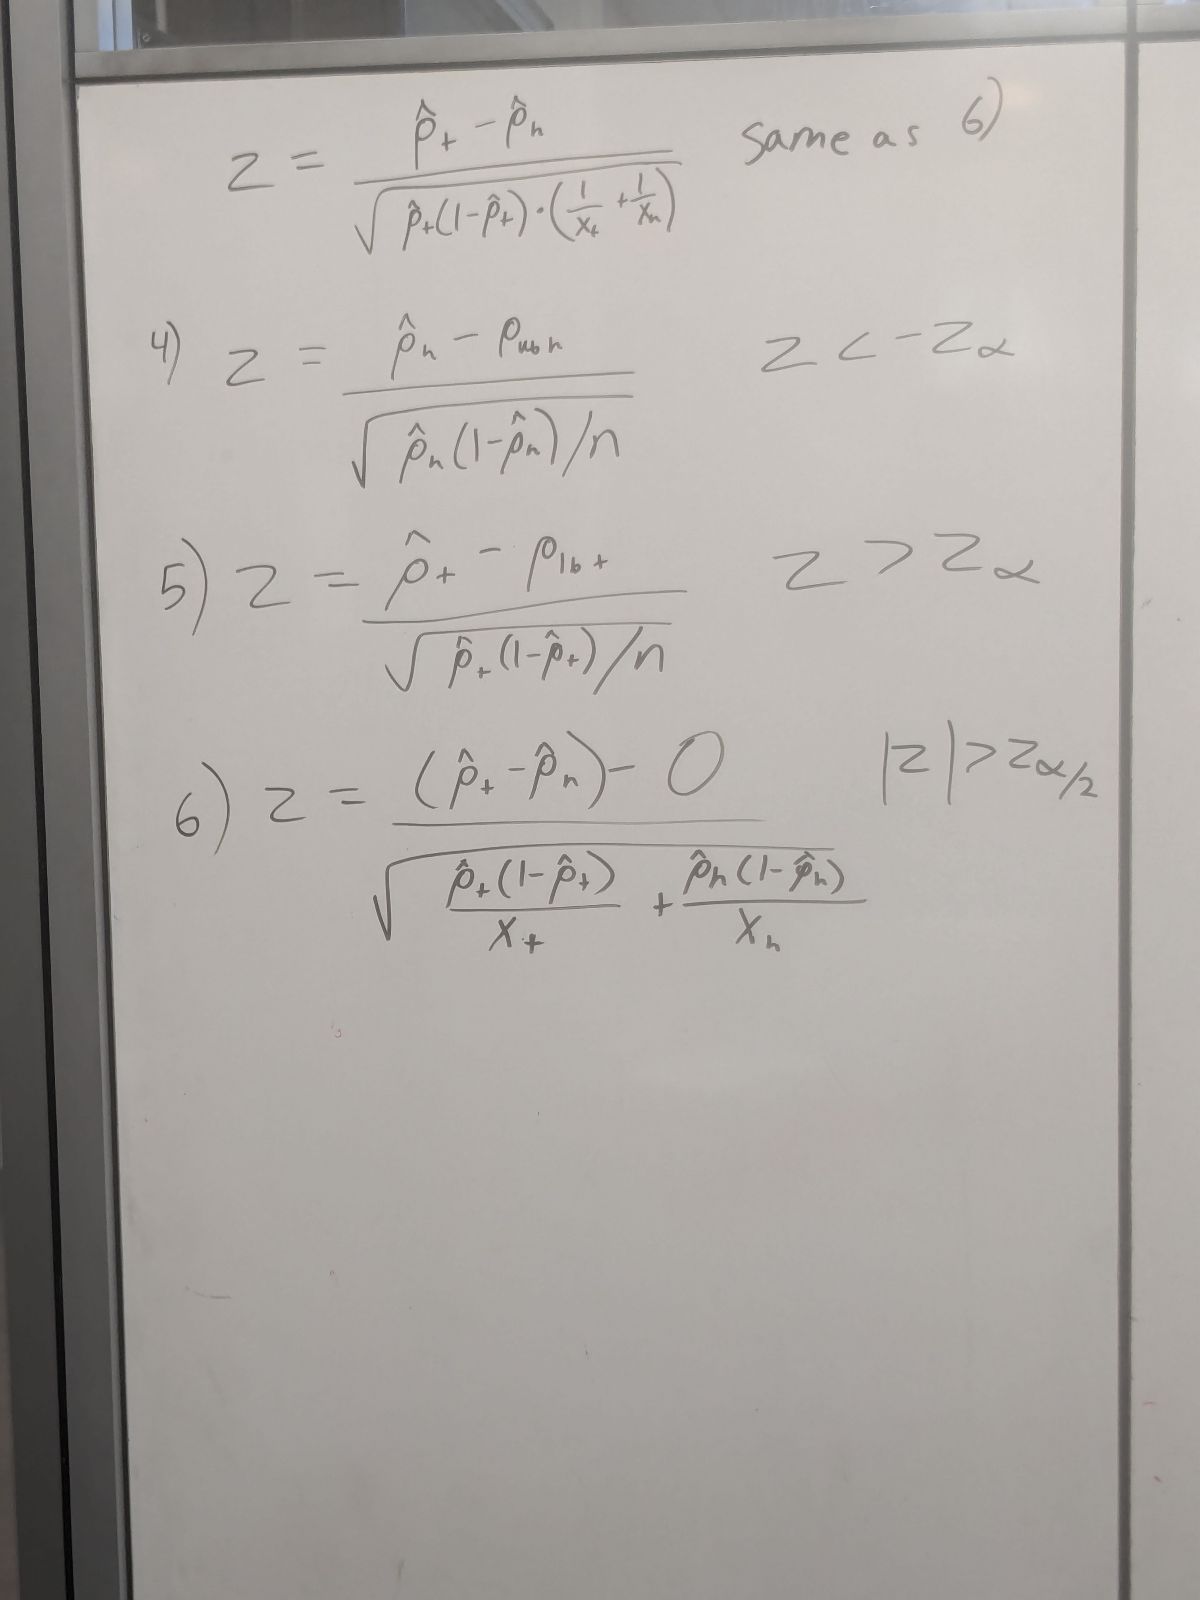 z = (p̂₊ - p̂ₙ) / √(p̂₊(1-p̂₊)·(1/x₊ + 1/xₙ)) same as 6)
4) z = (p̂ₙ - p) / √(p̂ₙ(1-p̂ₙ)/n) z < -z_α
5) z = (p̂₊ - p_lb+) / √(p̂₊(1-p̂₊)/n) z > z_α
6) z = ((p̂₊ - p̂ₙ) - 0) / √(p̂₊(1-p̂₊)/x₊ + p̂ₙ(1-p̂ₙ)/xₙ) |z| > z_α/2